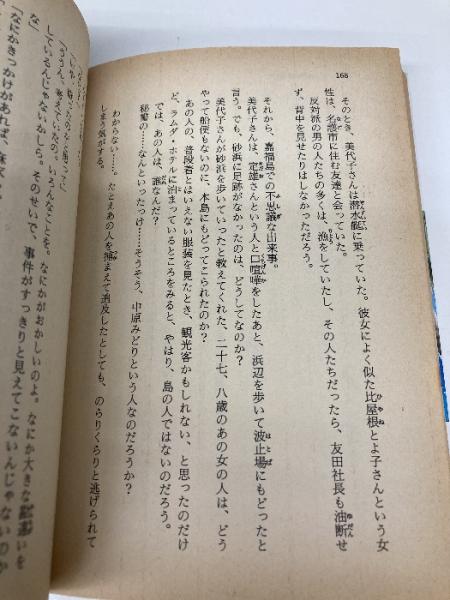 168
そのとき、美代子さんは潜水艇に乗っていた。彼女によく似た比屋根とよ子さんという女
性は、名護市に住む友達と会っていた。
反対派の男の人たちの多くは、漁をしていたし、その人たちだったら、友田社長も油断せ
ず、背中を見せたりはしなかっただろう。
それから、嘉福島での不思議な出来事。
美代子さんは、定雄さんという人と口喧嘩をしたあと、浜辺を歩いて波止場にもどったと
言う。でも、砂浜に足跡がなかったのは、どうしてなのか?
美代子さんが砂浜を歩いていったと教えてくれた、二十七、八歳のあの女の人は、どう
やって船便もないのに、本島にもどってこられたのか?
あの人の、普段着とはいえない服装を見たとき、観光客かもしれない、と思ったのだけ
ど、ラムダ・ホテルに泊まっているところをみると、やはり、島の人ではないのだろう。
では、あの人は、誰なんだ?
秘書の……なんといったっけ……そうそう、中原みどりという人なのだろうか?
わからない……。たとえあの人を捕まえて追及したとしても、のらりくらりと逃げられて
しまう気がする。
「ううん、考えていたの。いろんなことを。
しているんじゃないかしら。そのせいで、事件がすっきりと見えてこないんじゃないのか
な」
「なにかきっかけがあれば、